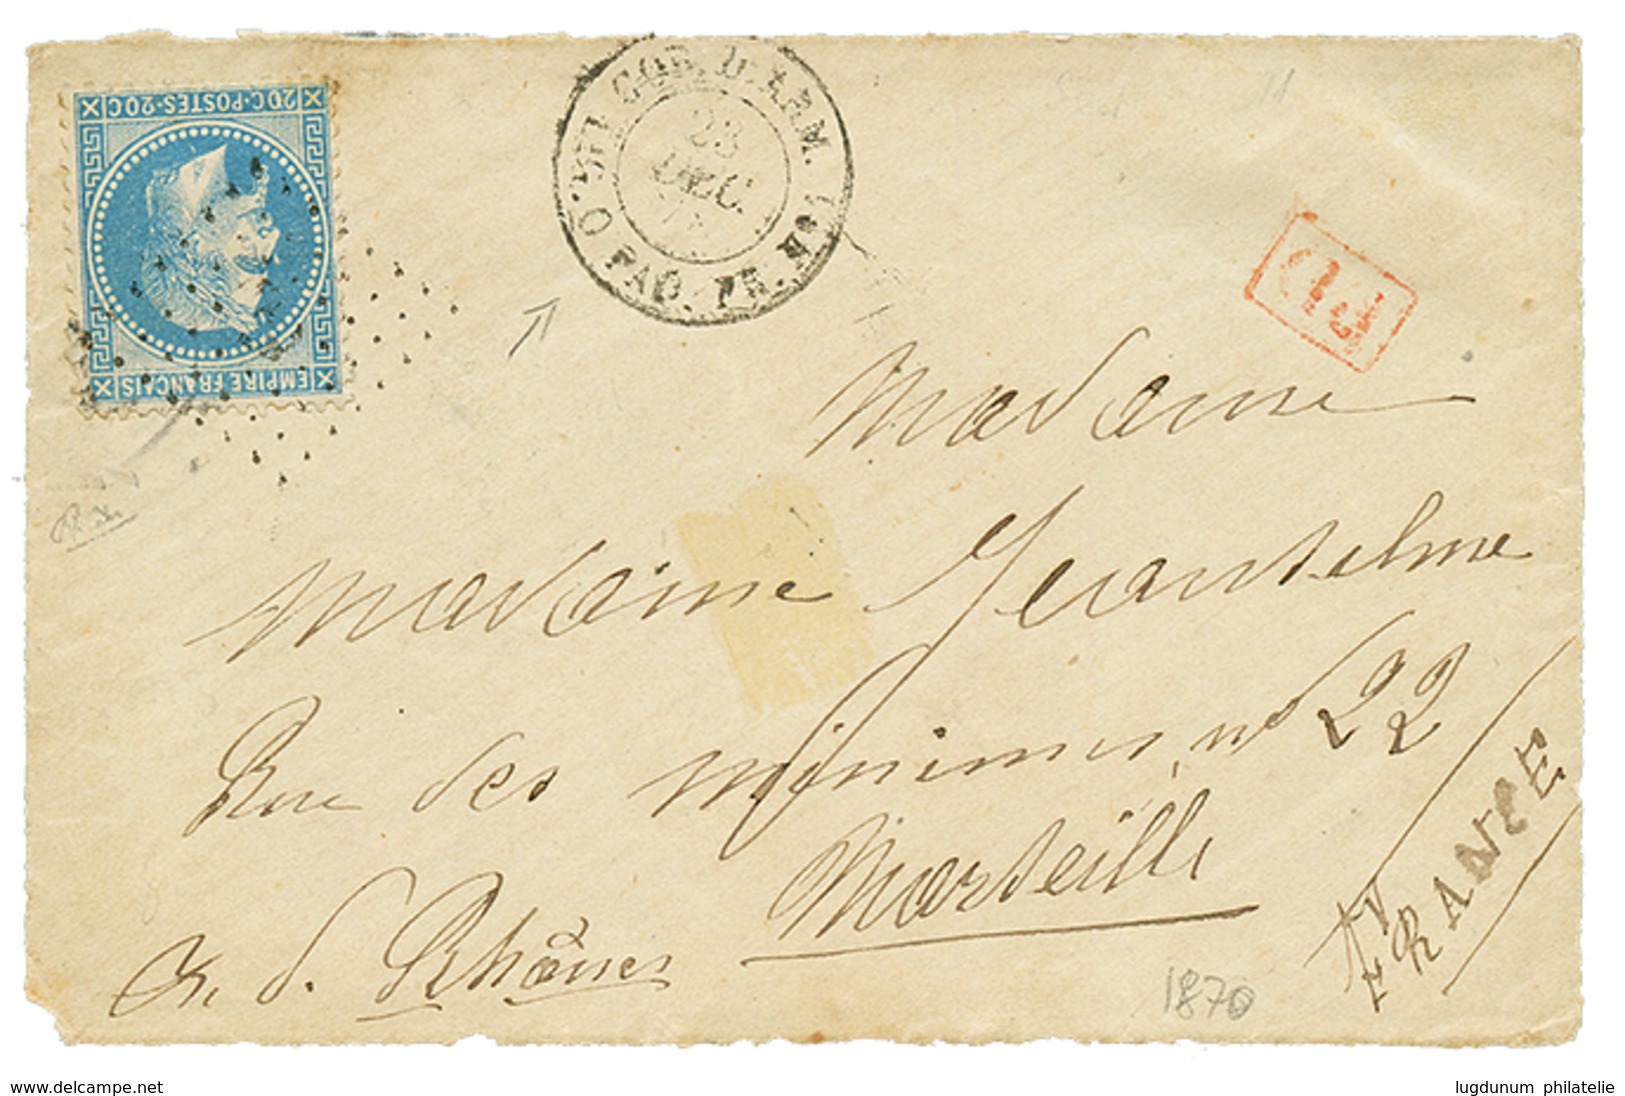 20C·POSTES·20C
EMPIRE FRANÇAIS
COR. D. ARM.
PAQ. FR.
23
DEC.
PD
Madame
Madame Jeanselme
Rue des Minimes, no 22
Marseille
B. d. Rhônes
FRANCE
1870
www.delcampe.net
lugdunum philatelie